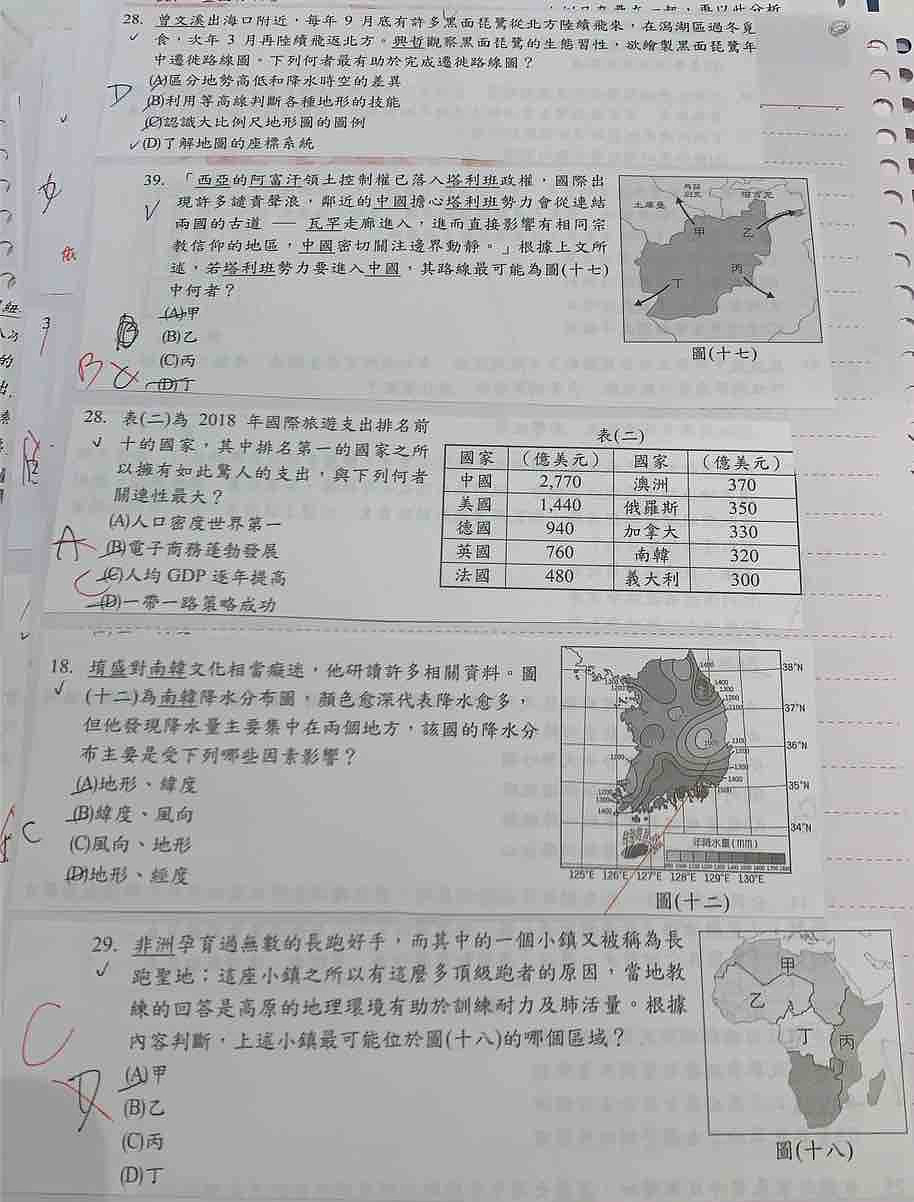 28. 曾文溪出海口附近，每年 9 月底有許多黑面琵鷺從北方陸續飛來，在潟湖區過冬覓
食，次年 3 月再陸續飛返北方。興哲觀察黑面琵鷺的生態習性，欲繪製黑面琵鷺年
中遷徙路線圖。下列何者最有助於完成遷徙路線圖？
(A)區分地勢高低和降水時空的差異
D (B)利用等高線判斷各種地形的技能
(C)認識大比例尺地形圖的圖例
(D)了解地圖的座標系統
39. 「西亞的阿富汗領土控制權已落入塔利班政權，國際出
現許多譴責聲浪，鄰近的中國擔心塔利班勢力會從連結
兩國的古道 — 瓦罕走廊進入，進而直接影響有相同宗
教信仰的地區，中國密切關注邊界動靜。」根據上文所
述，若塔利班勢力要進入中國，其路線最可能為圖(十七)
中何者？
(A)甲
(B)乙
(C)丙
B (D)丁
土庫曼
甲
乙
丙
丁
圖(十七)
28. 表(二)為 2018 年國際旅遊支出排名前
十的國家，其中排名第一的國家之所
以擁有如此驚人的支出，與下列何者
關連性最大？
(A)人口密度世界第一
A (B)電子商務蓬勃發展
C (C)人均 GDP 逐年提高
(D)一帶一路策略成功
表(二)
國家 （億美元） 國家 （億美元）
中國 2,770 澳洲 370
美國 1,440 俄羅斯 350
德國 940 加拿大 330
英國 760 南韓 320
法國 480 義大利 300
18. 堉盛對南韓文化相當癡迷，他研讀許多相關資料。圖
(十二)為南韓降水分布圖，顏色愈深代表降水愈多，
但他發現降水量主要集中在兩個地方，該國的降水分
布主要是受下列哪些因素影響？
(A)地形、緯度
(B)緯度、風向
C (C)風向、地形
(D)地形、經度
38°N
37°N
36°N
35°N
34°N
年降水量(mm)
125°E 126°E 127°E 128°E 129°E 130°E
圖(十二)
29. 非洲孕育過無數的長跑好手，而其中的一個小鎮又被稱為長
跑聖地；這座小鎮之所以有這麼多頂級跑者的原因，當地教
練的回答是高原的地理環境有助於訓練耐力及肺活量。根據
內容判斷，上述小鎮最可能位於圖(十八)的哪個區域？
C
(A)甲
D (B)乙
(C)丙
(D)丁
甲
乙
丁
丙
圖(十八)